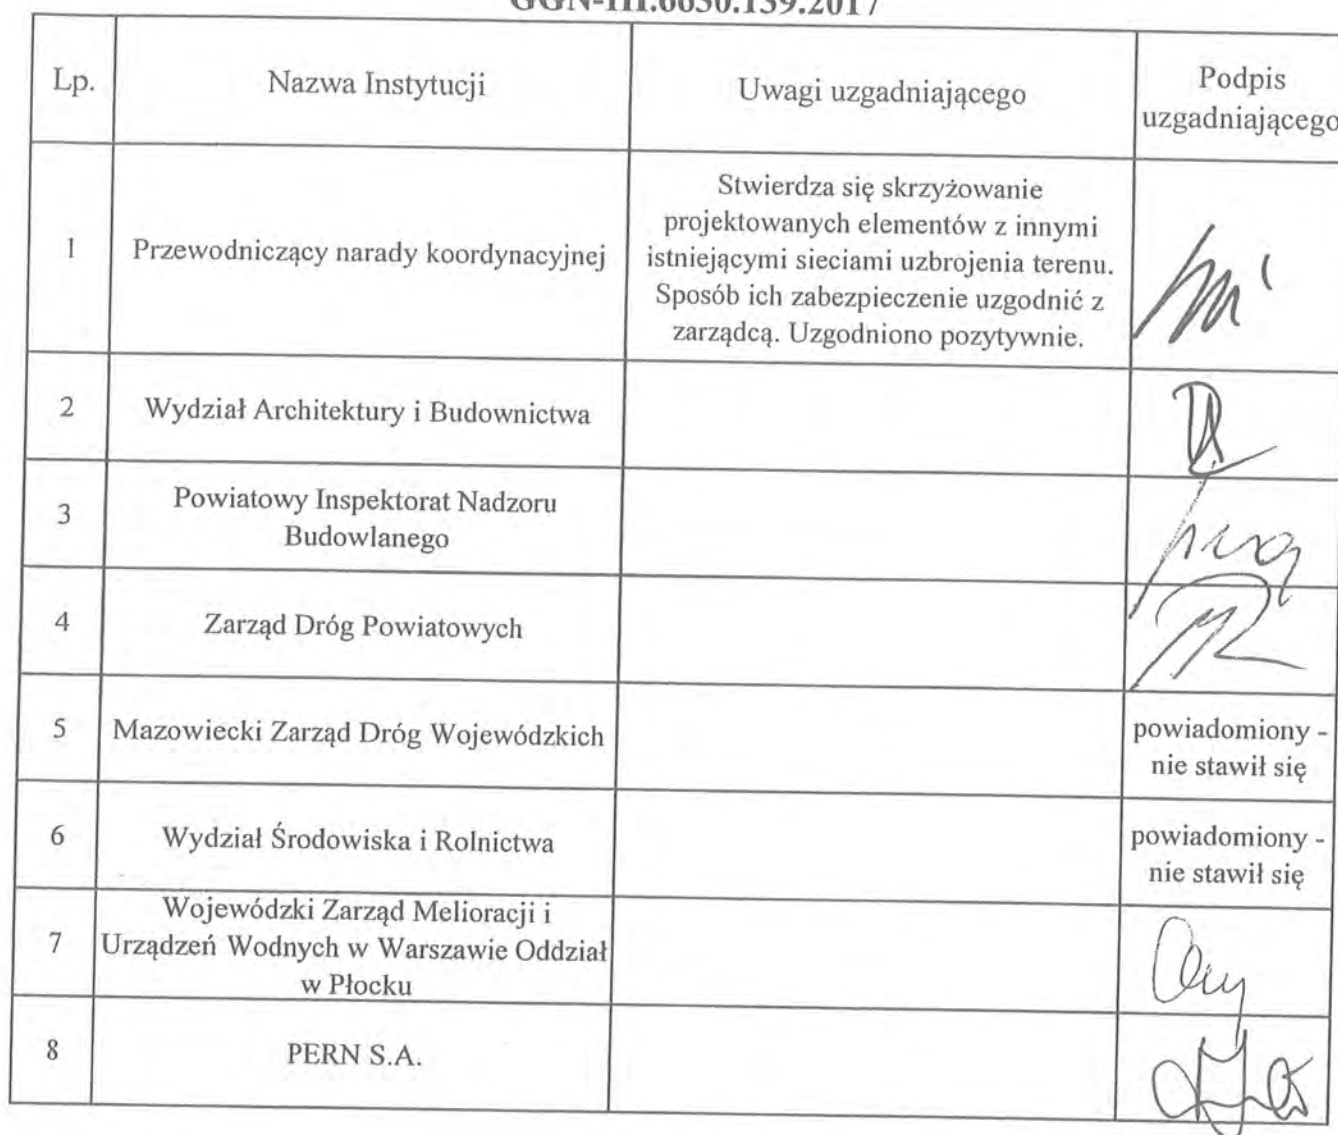 GGN-III.6630.139.2017
Lp.
Nazwa Instytucji
Uwagi uzgadniającego
Podpis
uzgadniającego
1
Przewodniczący narady koordynacyjnej
Stwierdza się skrzyżowanie
projektowanych elementów z innymi
istniejącymi sieciami uzbrojenia terenu.
Sposób ich zabezpieczenie uzgodnić z
zarządcą. Uzgodniono pozytywnie.
2
Wydział Architektury i Budownictwa
3
Powiatowy Inspektorat Nadzoru
Budowlanego
4
Zarząd Dróg Powiatowych
5
Mazowiecki Zarząd Dróg Wojewódzkich
powiadomiony -
nie stawił się
6
Wydział Środowiska i Rolnictwa
powiadomiony -
nie stawił się
7
Wojewódzki Zarząd Melioracji i
Urządzeń Wodnych w Warszawie Oddział
w Płocku
8
PERN S.A.